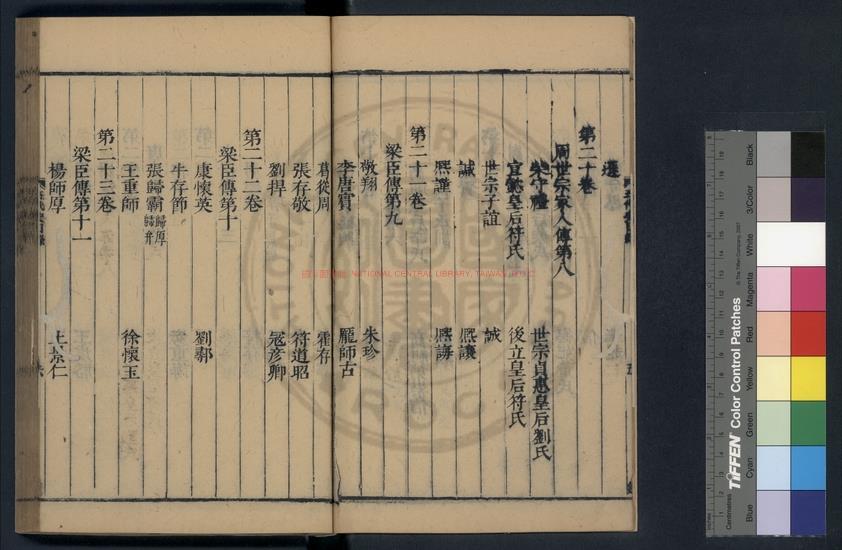 第二十卷
周世宗家人傳第八
柴守禮 世宗貞惠皇后劉氏
宣懿皇后符氏 後立皇后符氏
世宗子誼 誠
諴 熙讓
熙謹 熙誨
第二十一卷
梁臣傳第九
敬翔 朱珍
李唐賓 龐師古
葛從周 霍存
張存敬 符道昭
劉捍 寇彥卿
第二十二卷
梁臣傳第十
康懷英 劉鄩
牛存節
張歸霸 歸厚 歸弁
王重師 徐懷玉
第二十三卷
梁臣傳第十一
楊師厚 王景仁
NATIONAL CENTRAL LIBRARY, TAIWAN (R.O.C)
TIFFEN Color Control Patches
© The Tiffen Company, 2007
Centimetres
Blue
Cyan
Green
Yellow
Red
Magenta
White
3/Color
Black